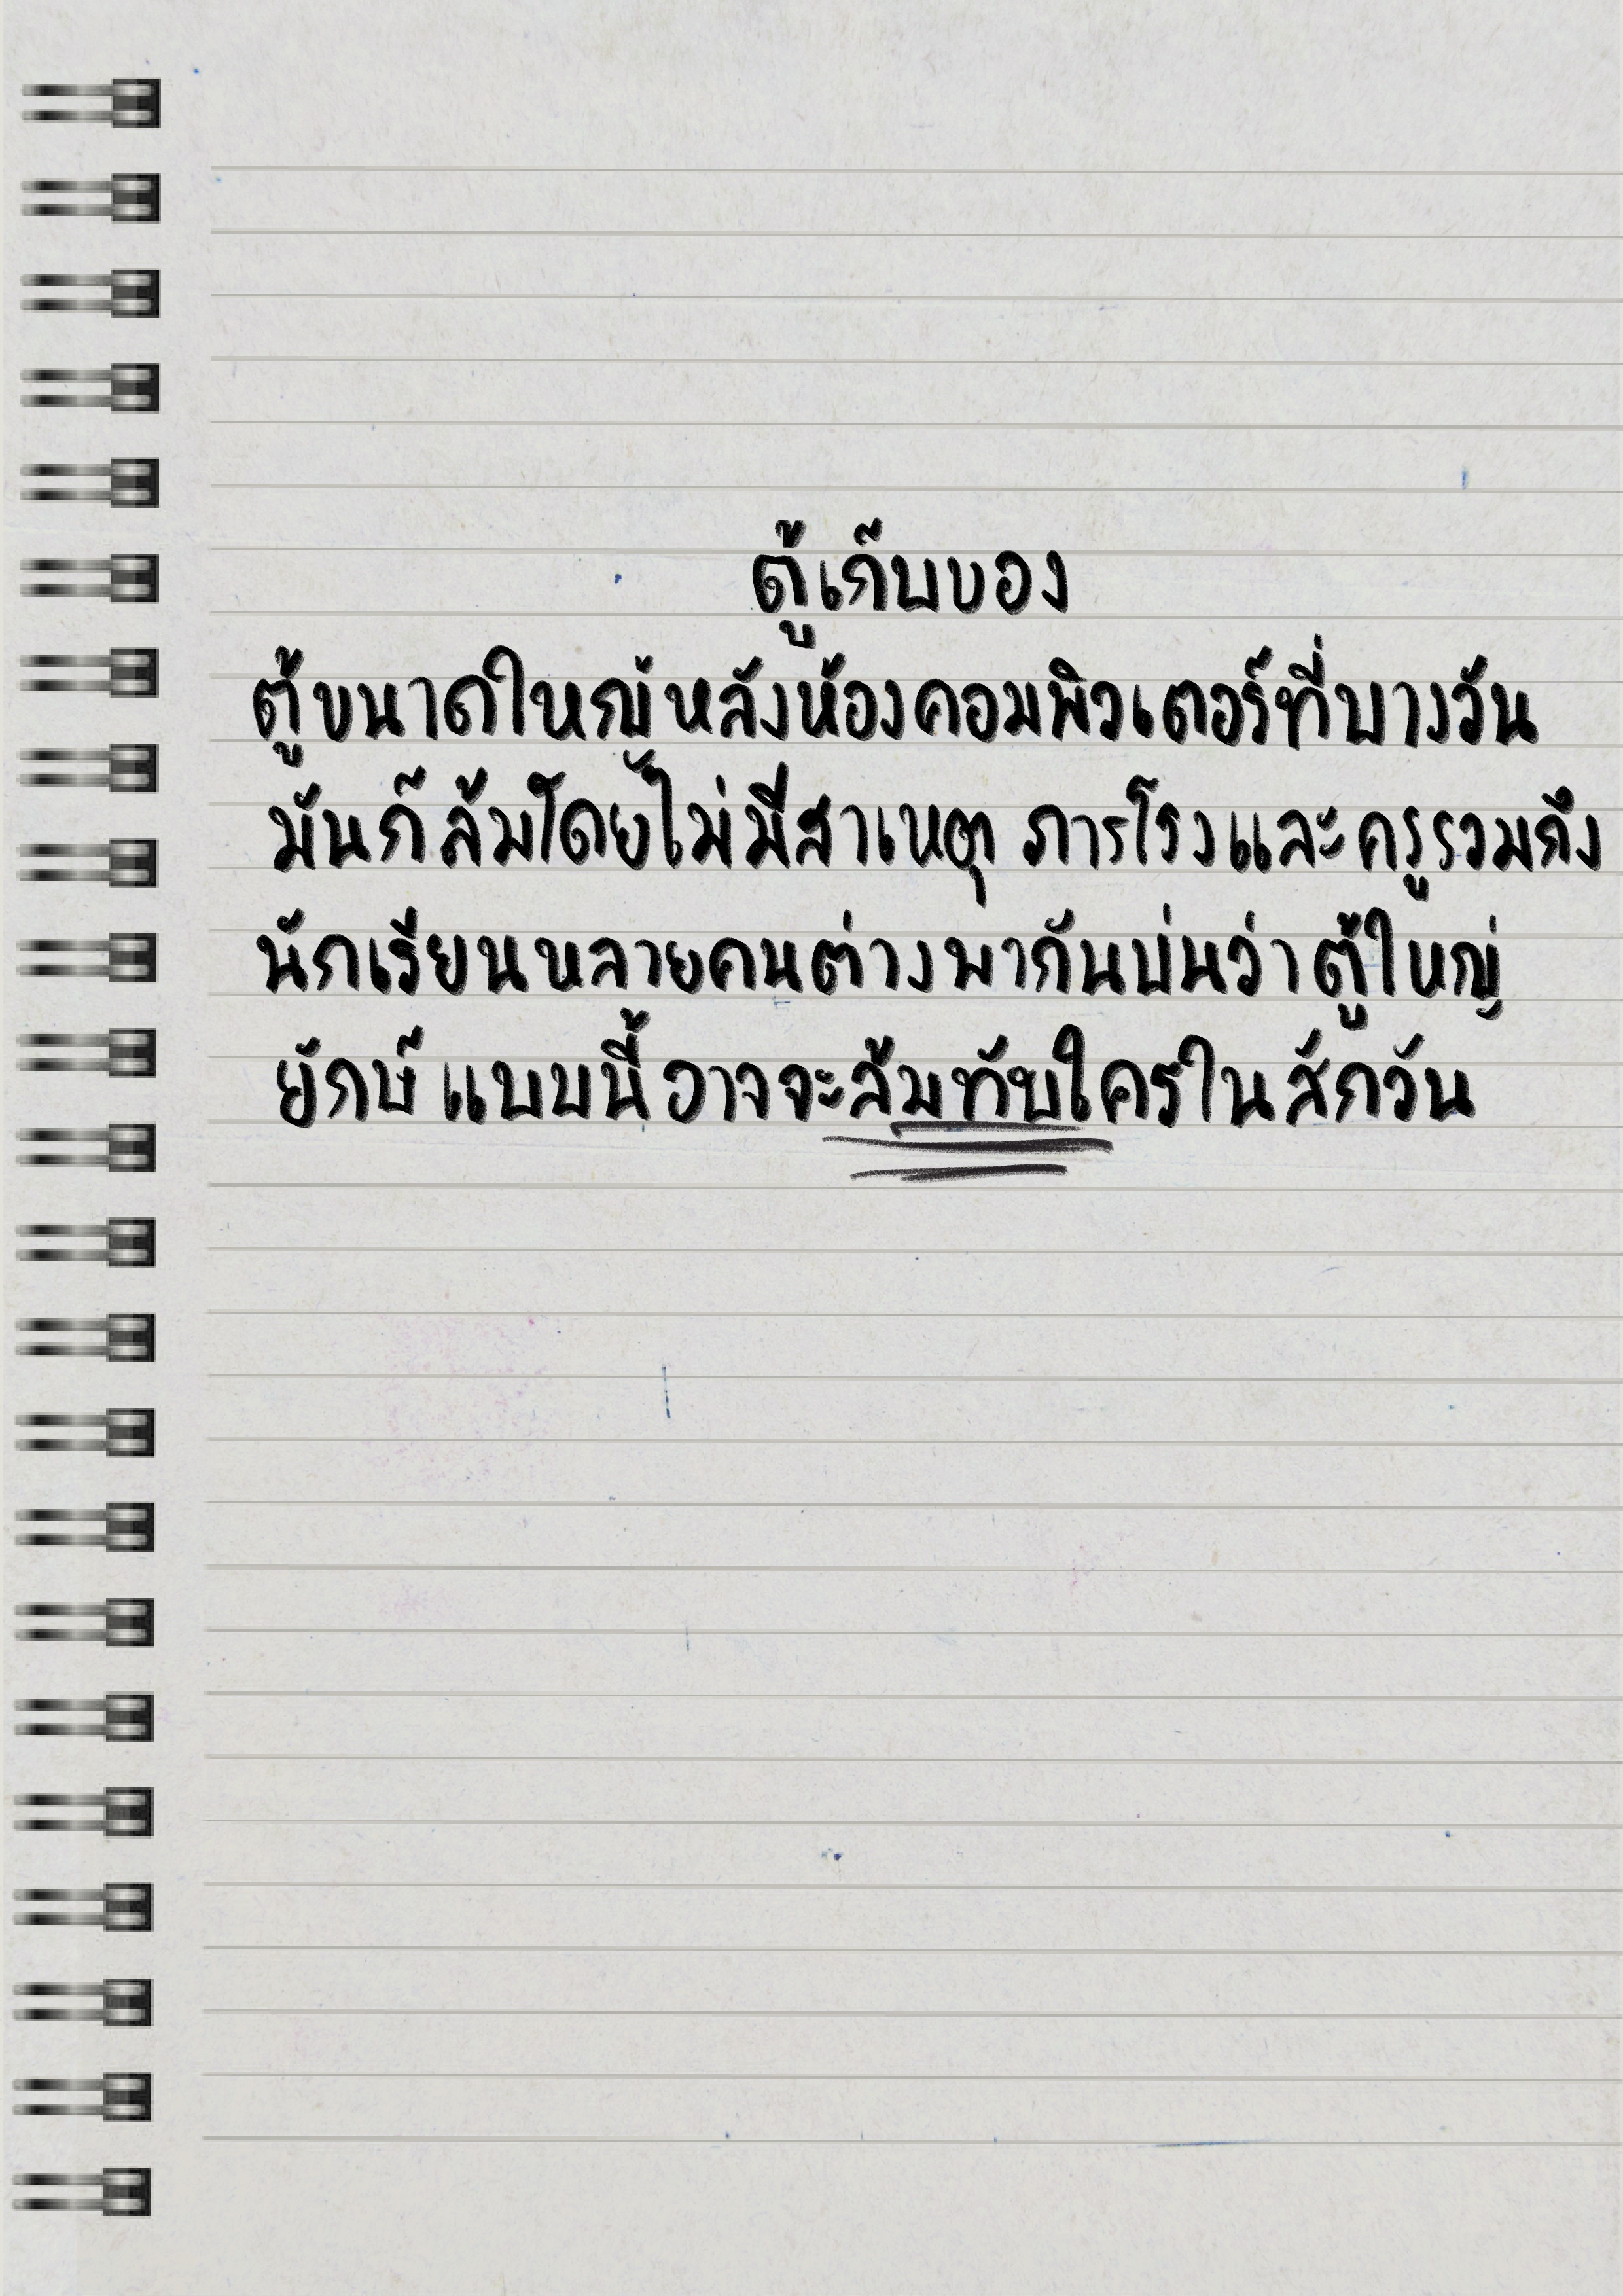 ตู้เก็บของ
ตู้ขนาดใหญ่หลังห้องคอมพิวเตอร์ที่บางวัน
มันก็ล้มโดยไม่มีสาเหตุ ภารโรงและครูรวมถึง
นักเรียนหลายคนต่างพากันบ่นว่าตู้ใหญ่
ยักษ์แบบนี้อาจจะล้มทับใครในสักวัน